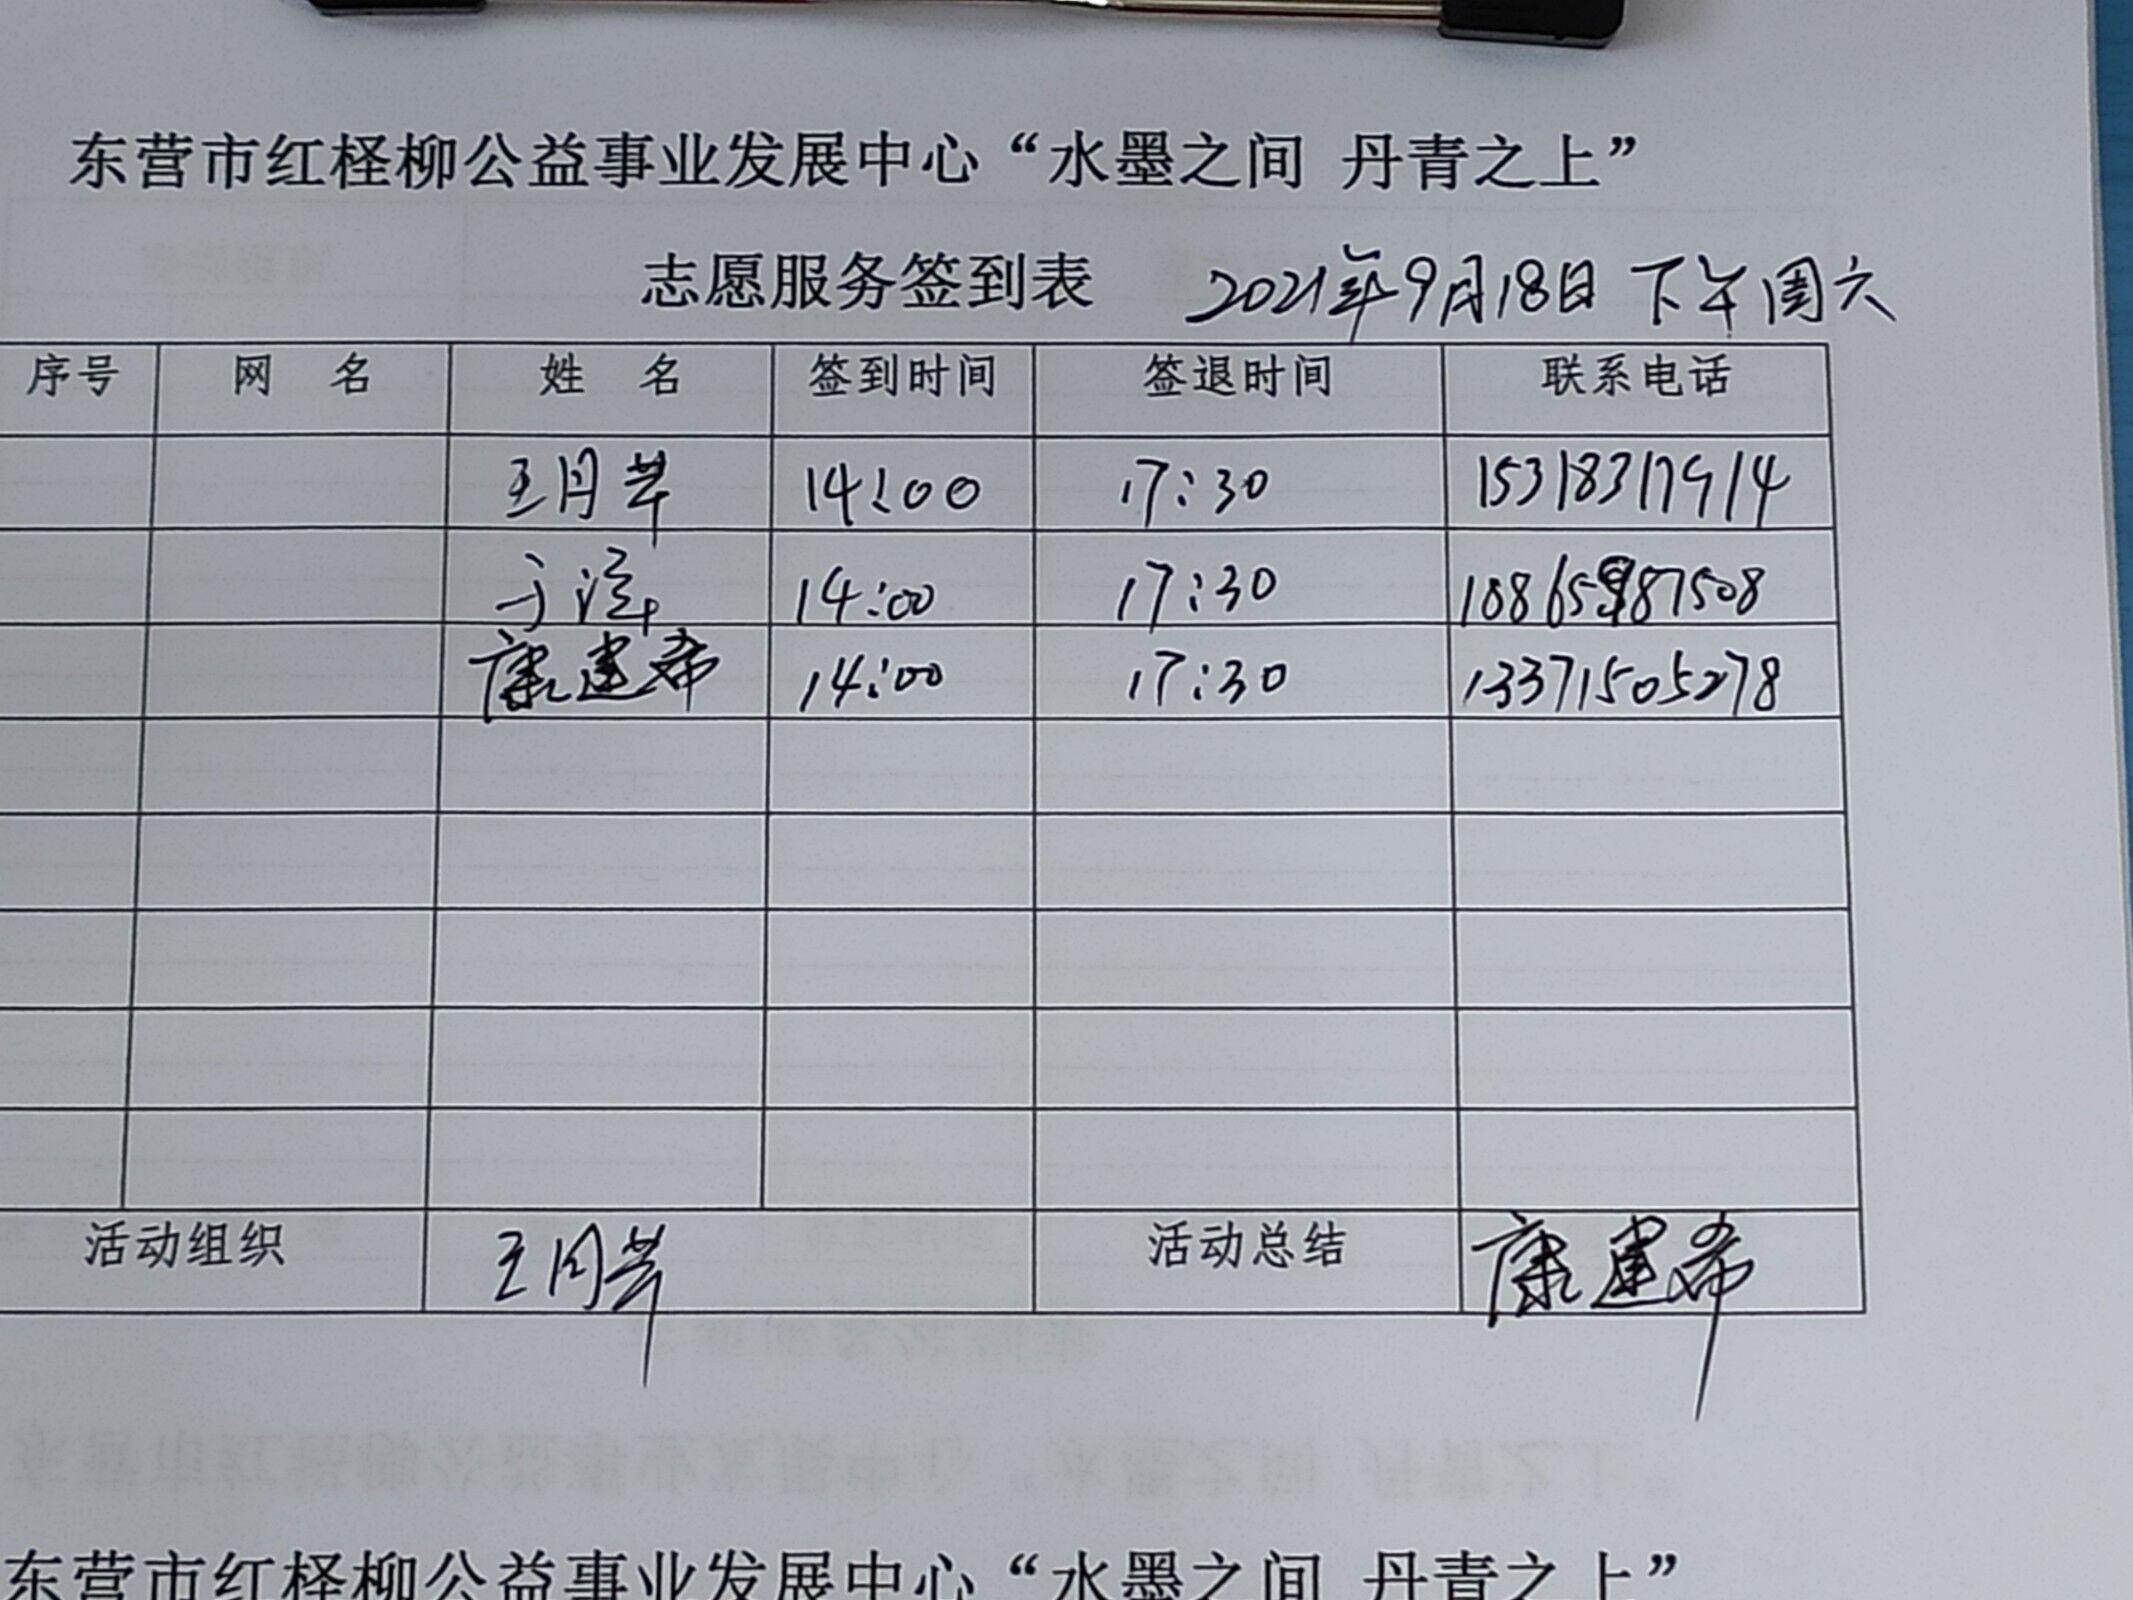 东营市红柽柳公益事业发展中心“水墨之间 丹青之上”
志愿服务签到表 2021年9月18日 下午周六
序号 网 名 姓 名 签到时间 签退时间 联系电话
王月芹 14:00 17:30 15318317914
于 14:00 17:30
康建希 14:00 17:30 13371505278
活动组织 王月芹 活动总结 康建希
东营市红柽柳公益事业发展中心“水墨之间 丹青之上”